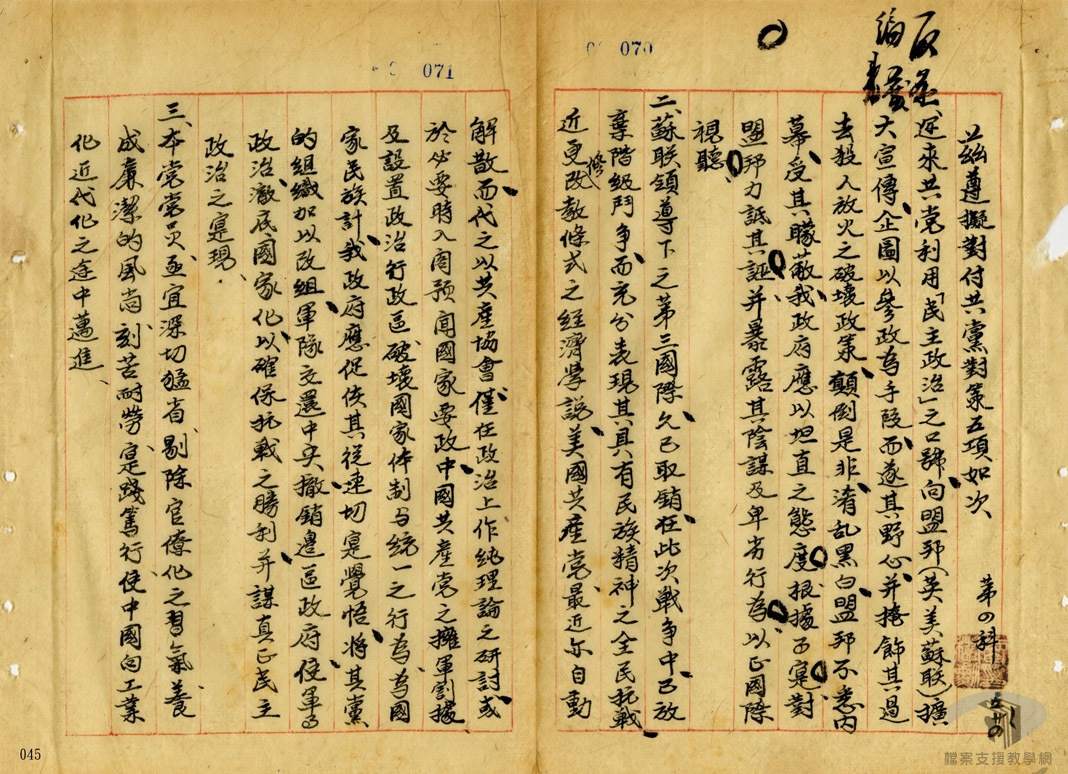 070
071
茲遵擬對付共黨對策五項如次
第四科
近來共党利用「民主政治」之口號向盟邦（英美蘇联）擴
大宣傳企圖以參政為手段而遂其野心并掩飾其過
去殺人放火之破壞政策顛倒是非淆乱黑白盟邦不悉內
幕受其矇蔽我政府應以坦直之態度根據事寔對
盟邦力詆其誣并暴露其陰謀及卑劣行為以正國際
視聽
二、蘇联領導下之第三國際久已取銷在此次戰爭中已放
棄階級鬥争而充分表現其具有民族精神之全民抗戰
近更修改教條式之經濟學說美國共產党最近亦自動
解散而代之以共產協會僅在政治上作純理論之研討或
於必要時入閣預聞國家要政中國共產党之擁軍割據
及設置政治行政區破壞國家体制与統一之行為為國
家民族計我政府應促使其從速切寔覺悟將其黨
的組織加以改組軍隊交還中央撤銷邊區政府使軍事
政治澈底國家化以確保抗戰之勝利并謀真正民主
政治之寔現．
三、本党党員亟宜深切猛省剔除官僚化之習氣養
成廉潔的風尚刻苦耐勞寔踐篤行使中國向工業
化近代化之途中邁進、
045
檔案支援教學網